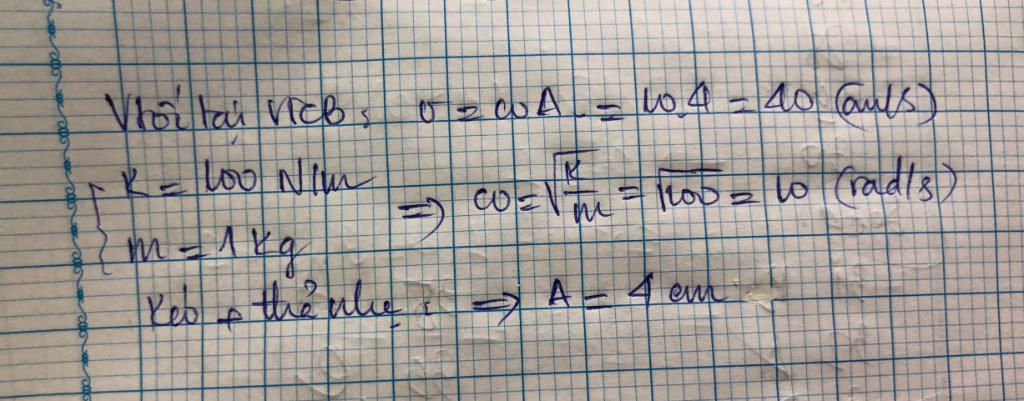 Vtốc tại VTCB: v = ωA = 10.4 = 40 (cm/s)
{ K = 100 N/m => ω = √(K/m) = √100 = 10 (rad/s)
m = 1 kg
Kéo + thả nhẹ: => A = 4 cm